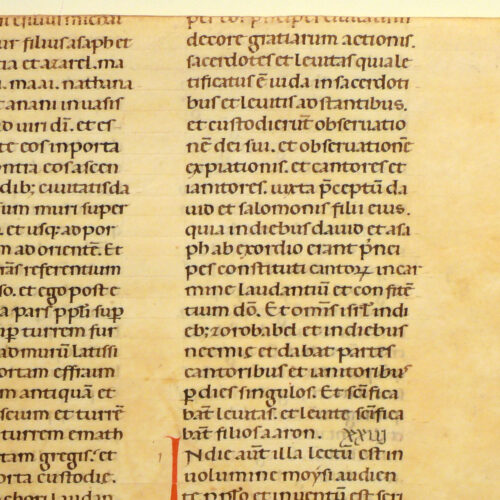 ur filius asaph et
ia et azarel. ma
. maai. nathana
t anani in uasis
d uiri dī. et es
te eos in porta
ntra eos ascen
dib; ciuitatis da
sum muri super
et usq; ad por
m ad orientē. Et
rās referentium
so. et ego post e
a pars pp̄li sup̄
up̄ turrem fur
ad murū latissi
ortam effraim
m antiquā et
scium et turrē
turrem emath
tam gregis. et
porta custodie.
per co. p̄cipere ciuitatum
decore gratiarum actionis.
sacerdotes et leuitas quia le
tificatus ē iuda in sacerdoti
bus et leuitis adstantibus.
et custodierūt obseruatio
nē dei sui. et obseruationē
expiationis. et cantores et
ianitores. iuxta p̄ceptū da
uid et salomonis filii eius.
quia in diebus dauid et asa
ph ab exordio erant p̄nci
pes constituti cantoꝝ in car
mine laudantiū et confitē
tium dō. Et omīs isrl̄ in di
eb; zorobabel et in diebus
neemie et dabat partes
cantoribus et ianitoribus
p̄ dies singulos. Et sc̄ifica
bāt leuitas. et leuite sc̄ifica
bāt filios aaron. xxiij
Indie aūt illa lectū est in
uolumine moysi audien
te pp̄lo et inuentū est scri